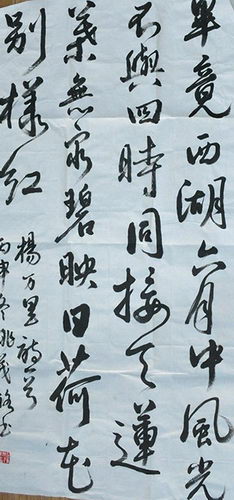 畢竟西湖六月中風光
不與四時同接天蓮
葉無窮碧映日荷花
別樣紅
楊万里詩一首
丙申冬